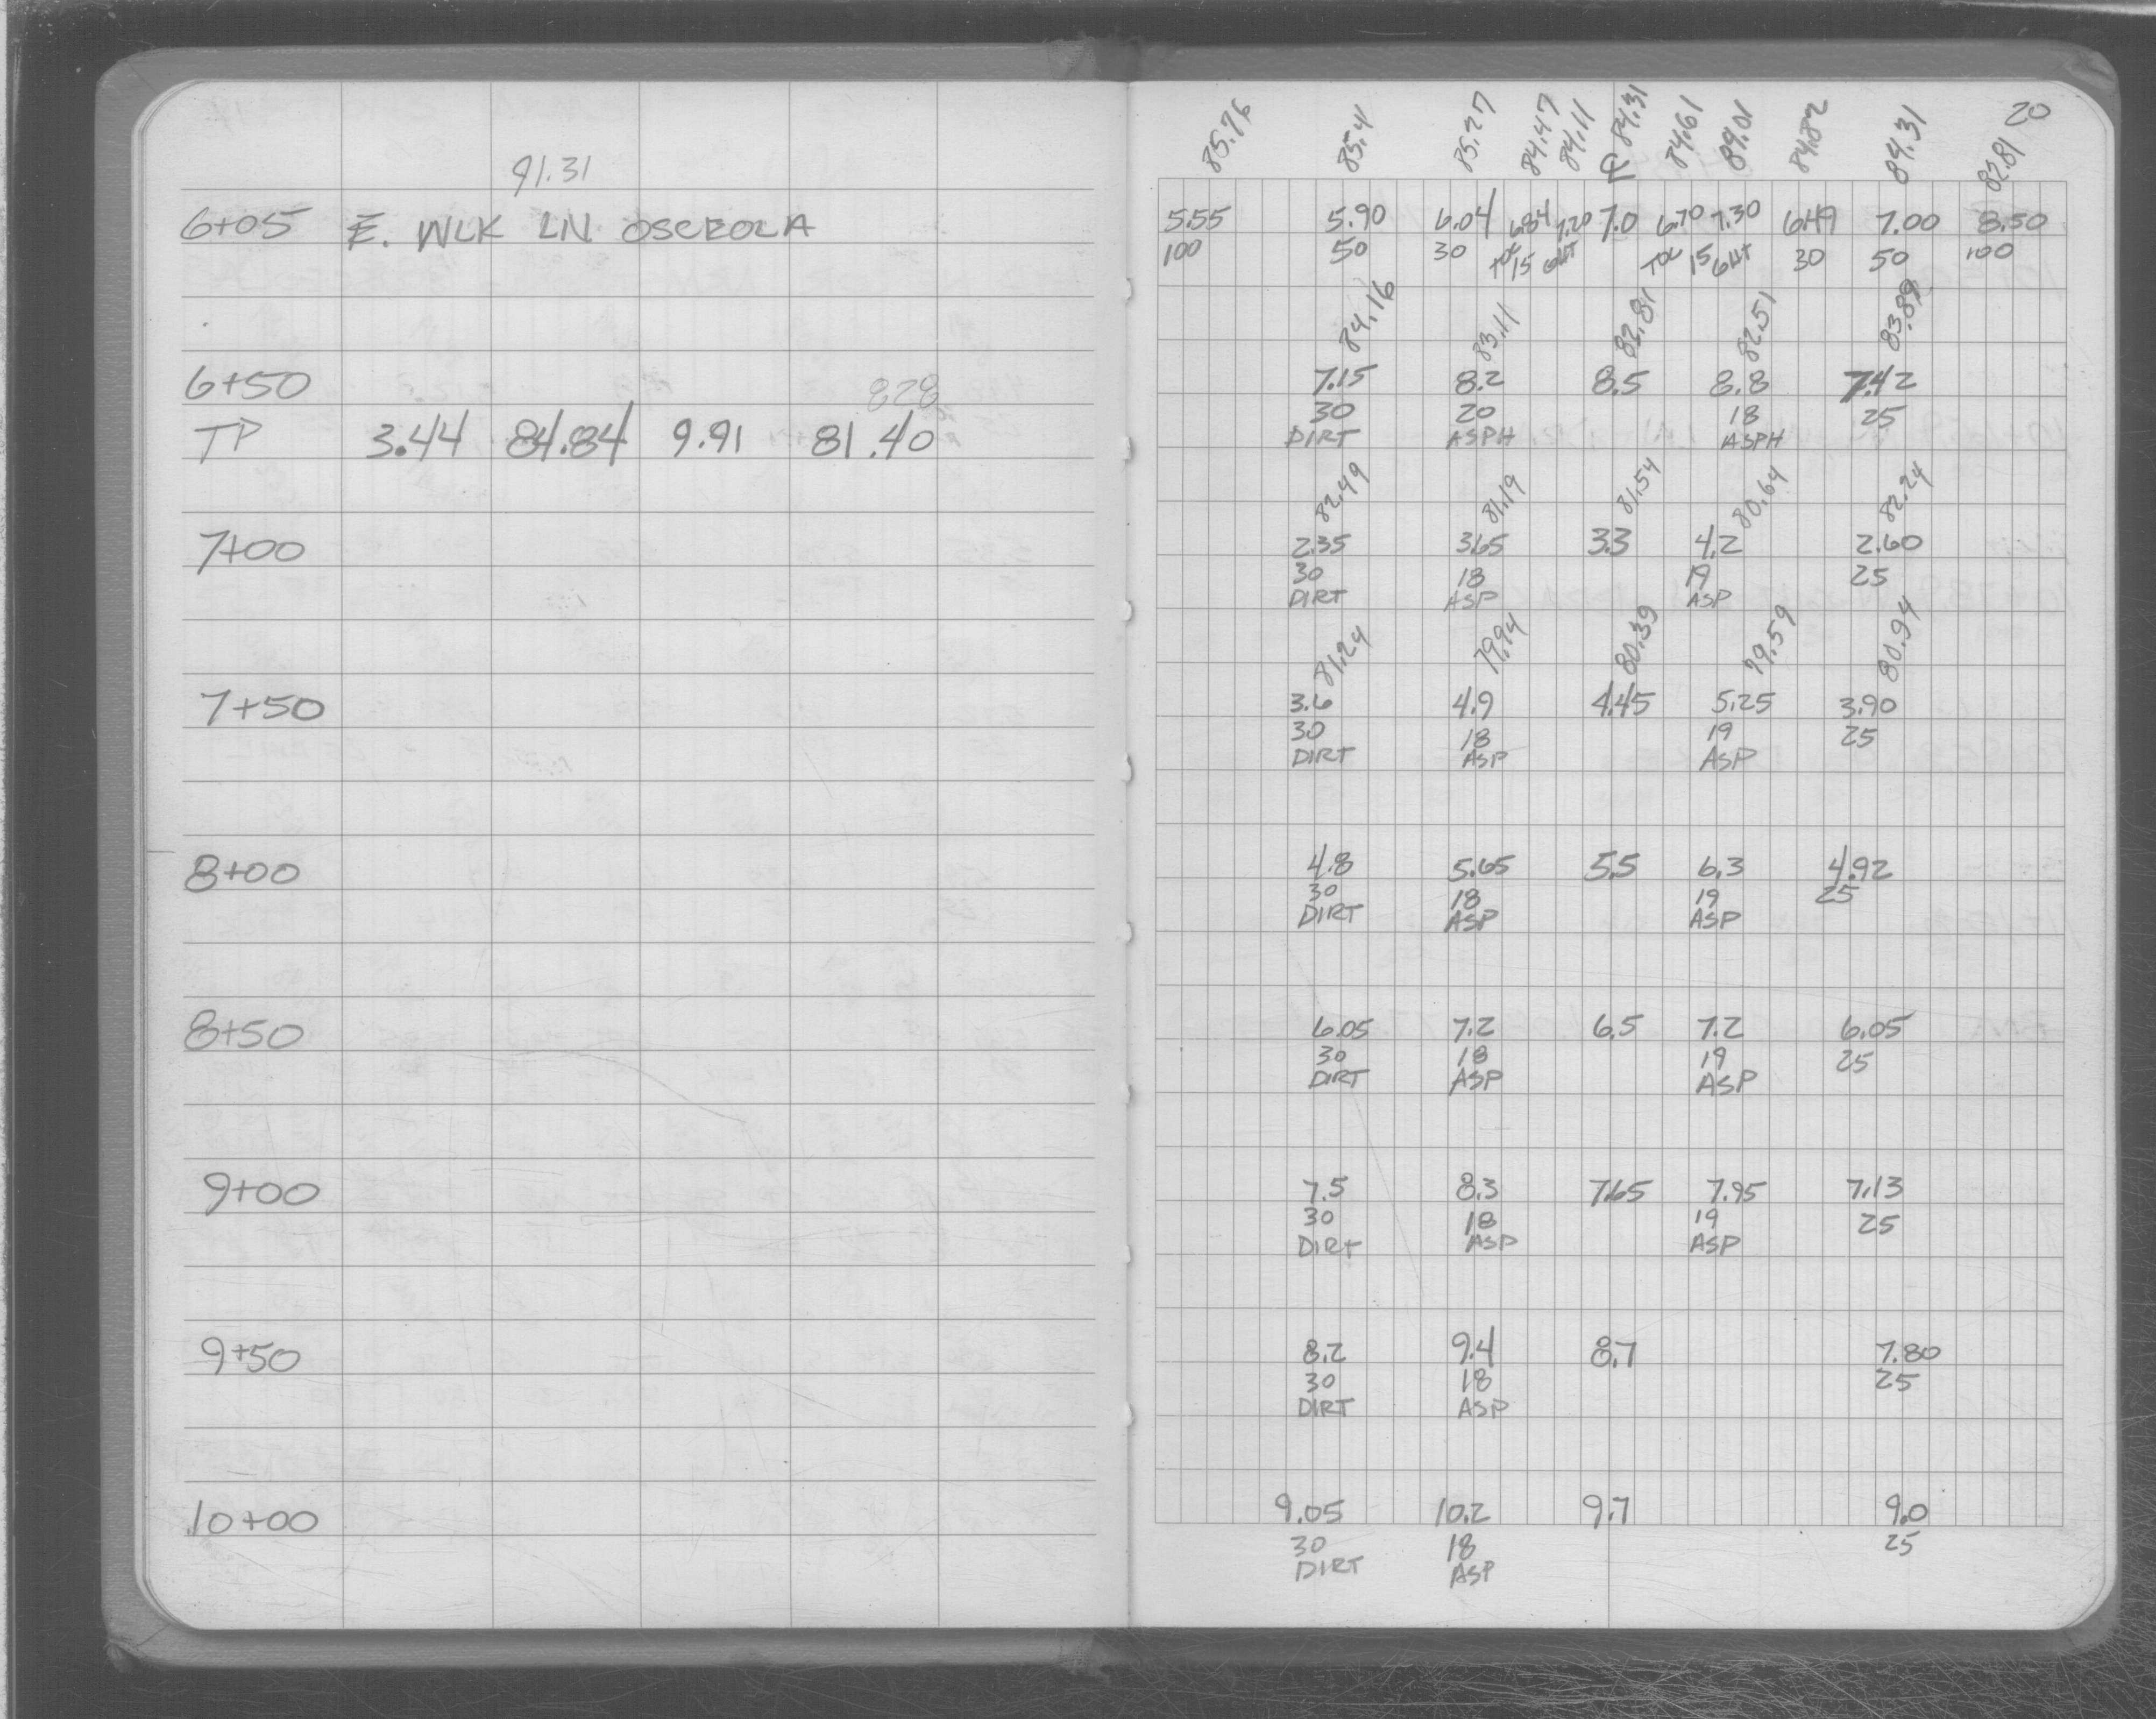 20
85.76 85.41 85.27 84.47 84.11 ℄ 84.31 84.61 84.01 84.82 84.31 82.81
91.31
6+05 E. WLK LN OSCEOLA 5.55 5.90 6.04 6.84 7.20 7.0 6.70 7.30 6.49 7.00 8.50
100 50 30 TOC 15 GUT TOC 15 GUT 30 50 100
84.16 83.11 82.81 82.51 83.89
6+50 828 7.15 8.2 8.5 8.8 7.42
30 20 18 25
TP 3.44 84.84 9.91 81.40 DIRT ASPH ASPH
82.49 81.19 81.54 80.64 82.24
7+00 2.35 3.65 3.3 4.2 2.60
30 18 19 25
DIRT ASP ASP
81.24 79.94 80.39 79.59 80.94
7+50 3.6 4.9 4.45 5.25 3.90
30 18 19 25
DIRT ASP ASP
8+00 4.8 5.65 5.5 6.3 4.92
30 18 19 25
DIRT ASP ASP
8+50 6.05 7.2 6.5 7.2 6.05
30 18 19 25
DIRT ASP ASP
9+00 7.5 8.3 7.65 7.95 7.13
30 18 19 25
DIRT ASP ASP
9+50 8.2 9.4 8.7 7.80
30 18 25
DIRT ASP
10+00 9.05 10.2 9.7 9.0
30 18 25
DIRT ASP